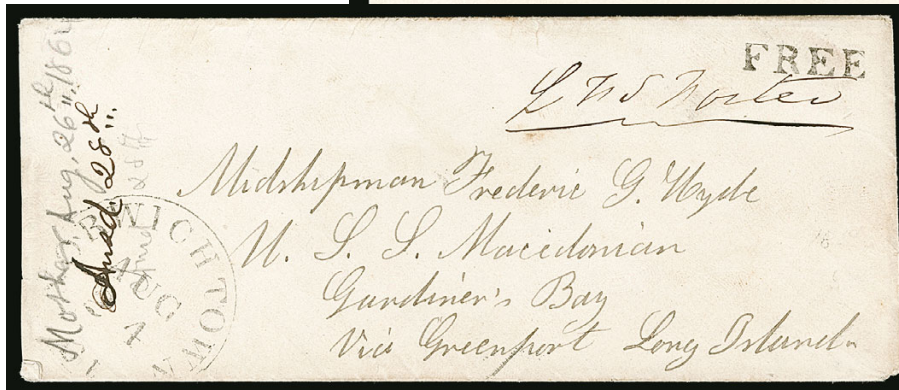 FREE
L F S Foster
Midshipman Frederic G. Hyde
U. S. S. Macedonian
Gardiner's Bay
Via Greenport Long Island.
Mother, Aug. 26th 1864
Ansd 28th
Ansd 28th
WICH TOWN
AUG